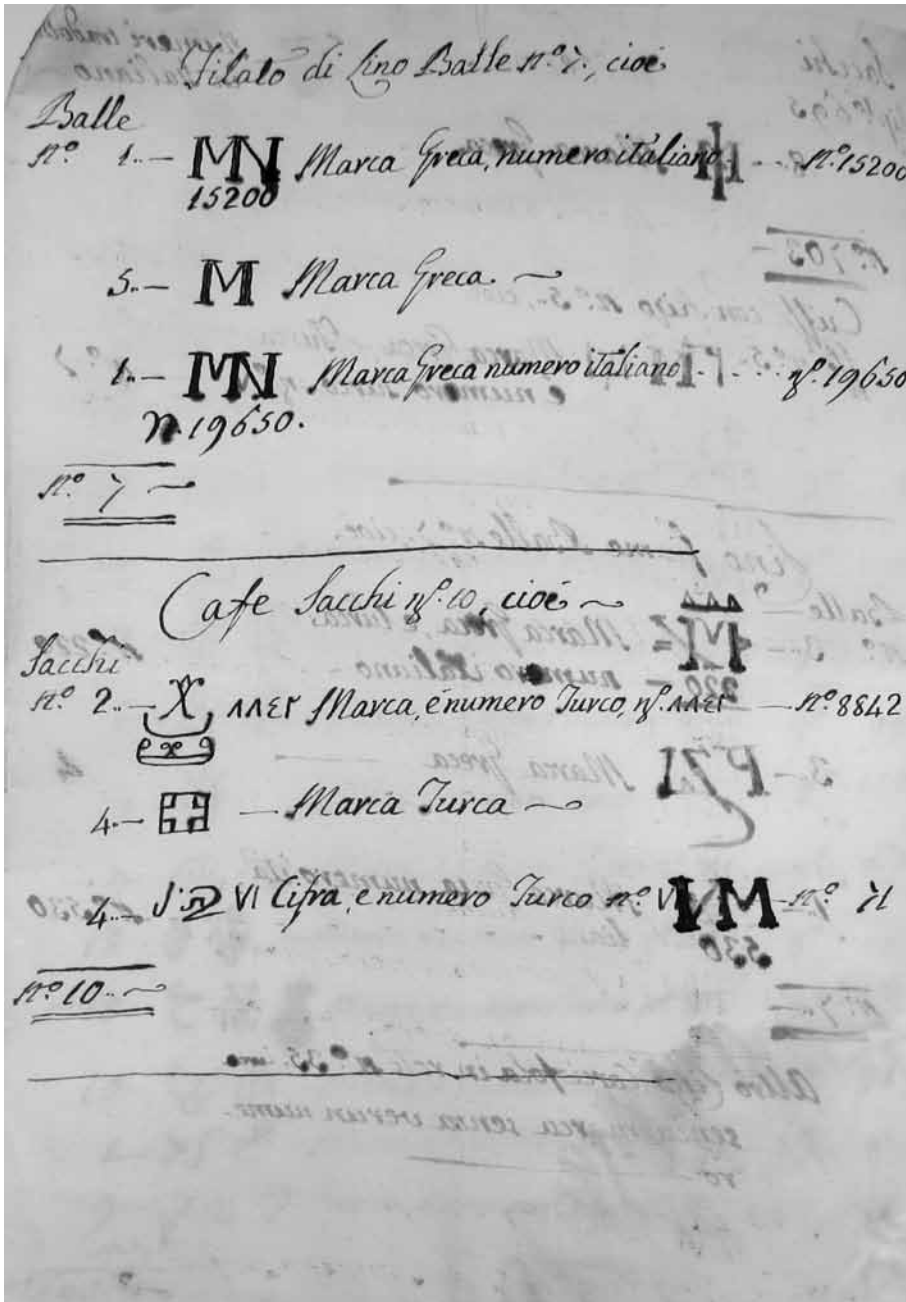 Filato di Lino Balle nº. 7., cioè
Balle
nº 1..— MN Marca Greca, numero italiano - -- nº.15200
15200
5..— M Marca Greca. ~
1..— MN Marca Greca numero italiano . . . . . nº. 19650
N. 19650.
nº 7 ~
Cafe Sacchi nº. 10, cioè ~
Sacchi
nº 2..— X ٨٨٤٢ Marca, è numero Turco, nº. ٨٨٤٢ — nº 8842
4..— — Marca Turca ~
4..— ٧١ Cifra, e numero Turco nº ٧١ — nº 71
nº 10.. ~